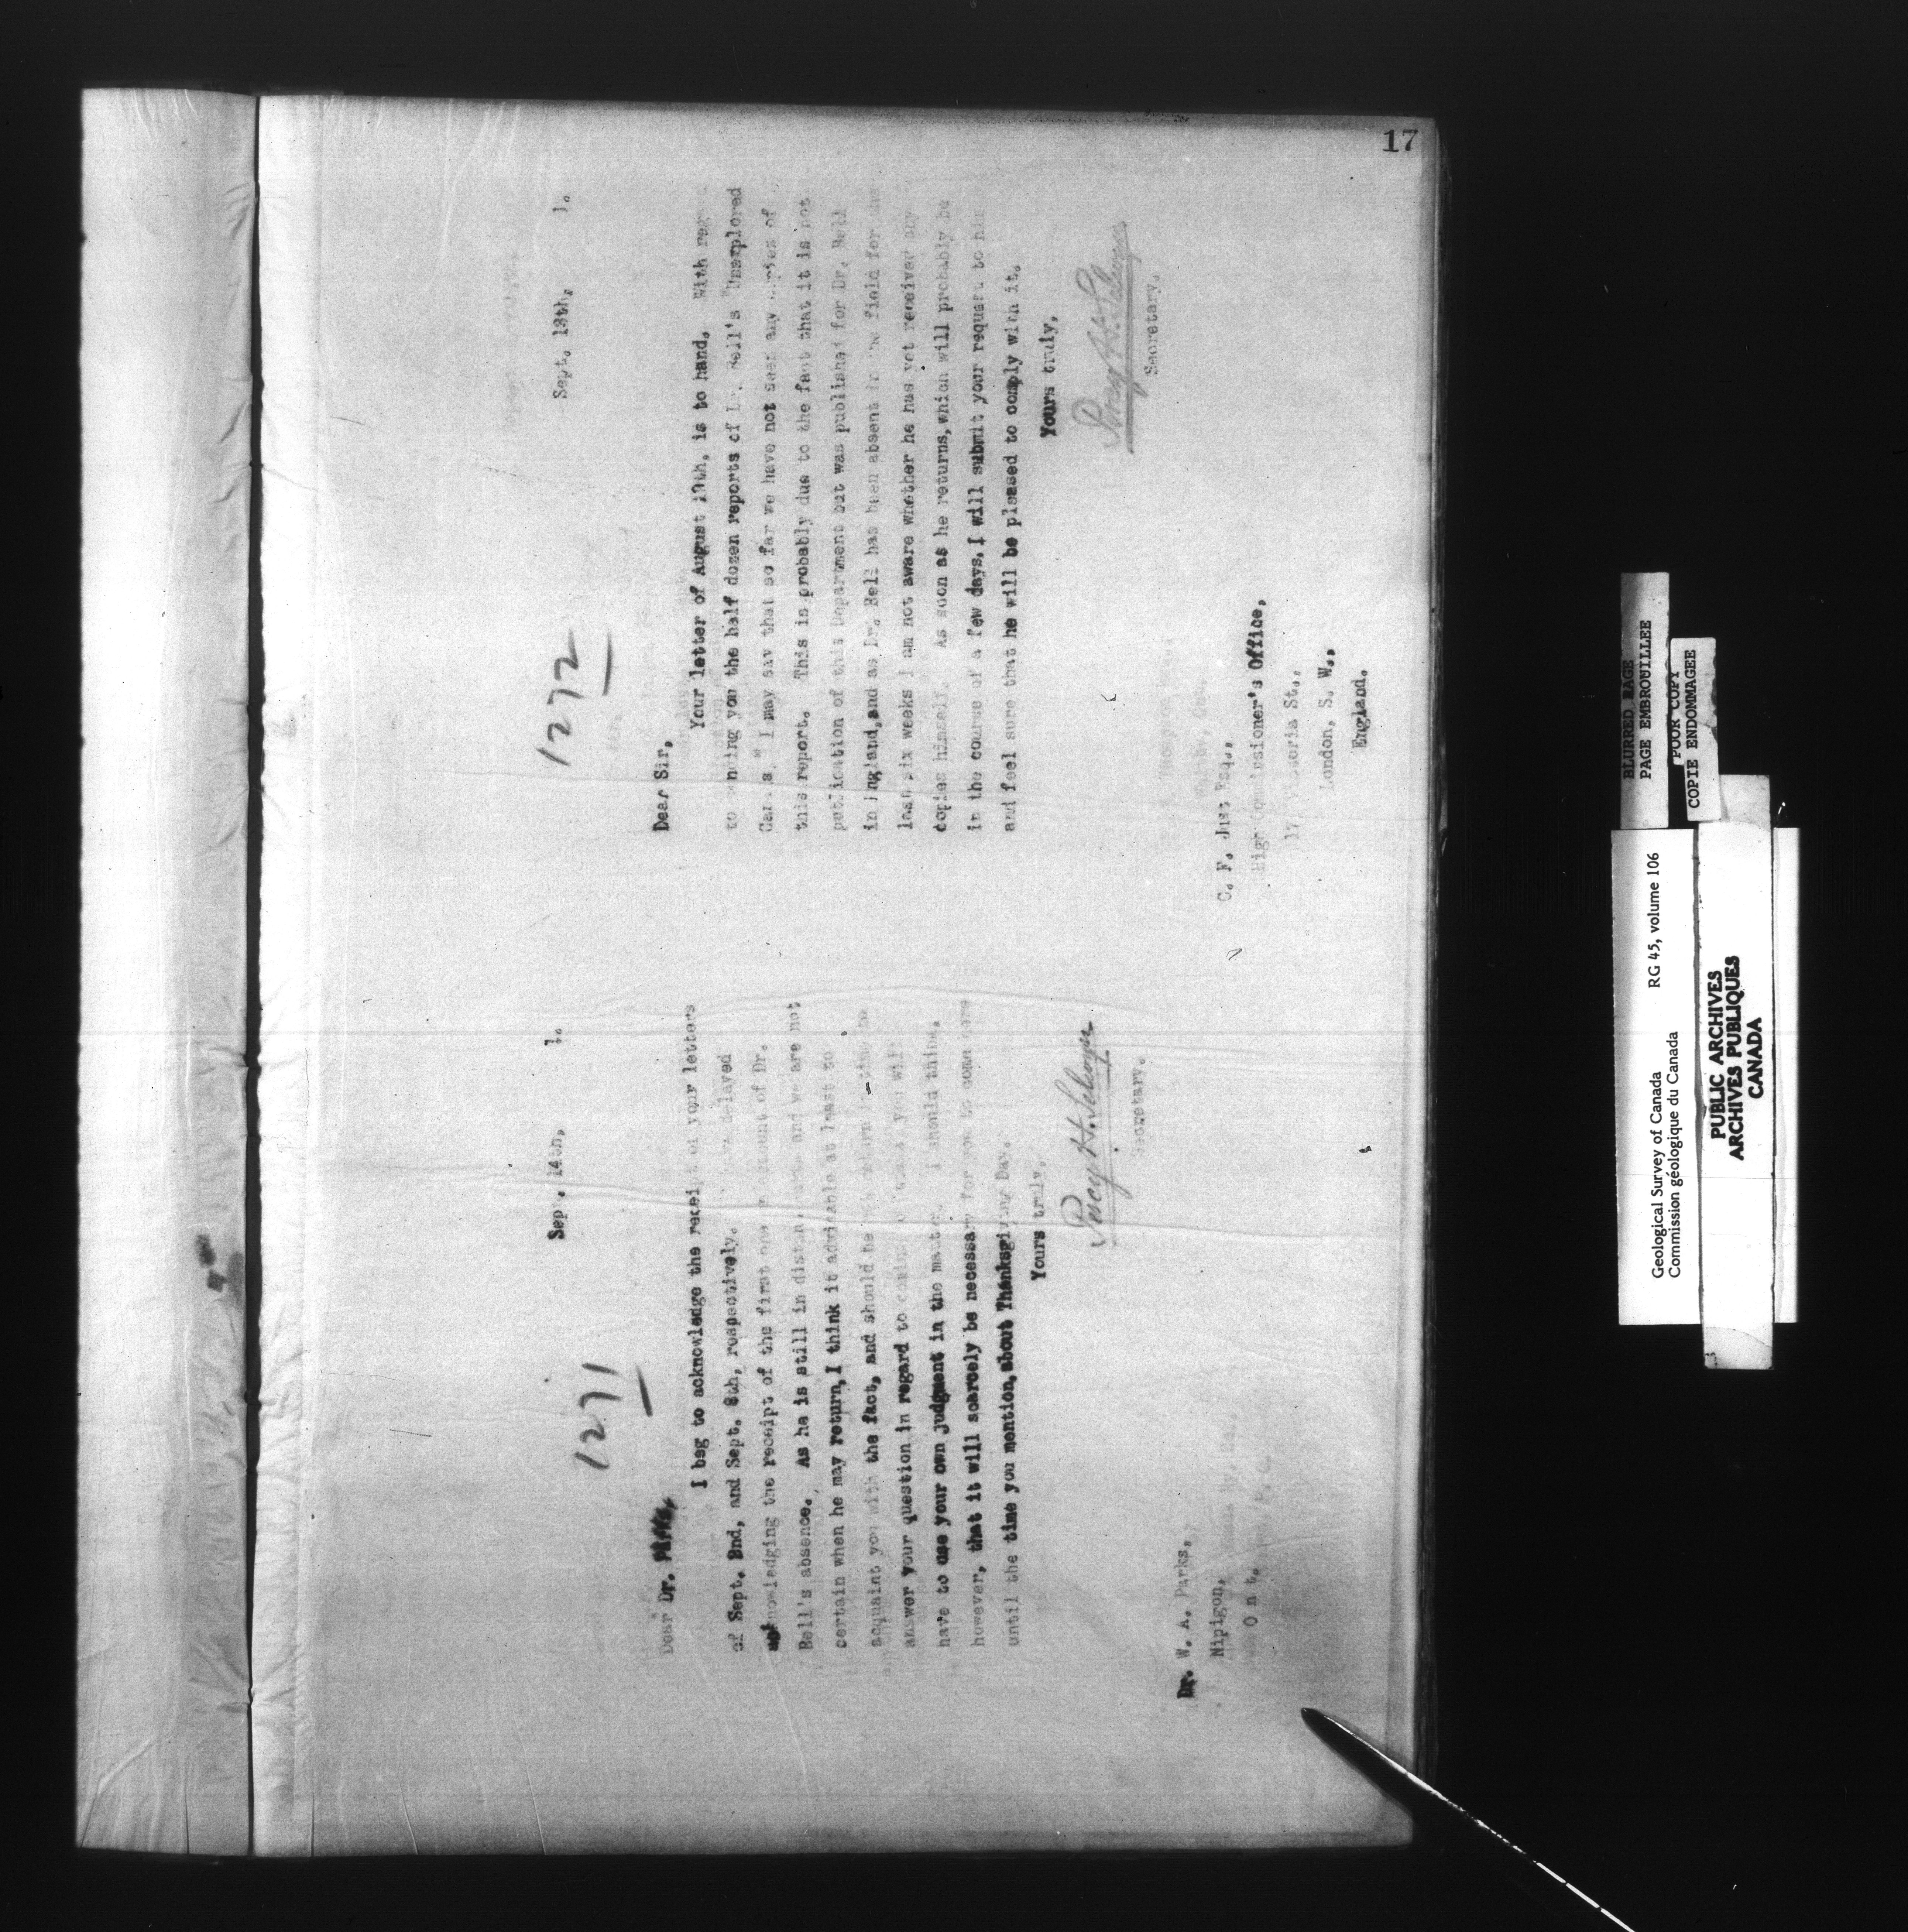 17
1271
Sep . 14th, 1.
Dear Dr.
I beg to acknowledge the receipt of your letters
of Sept. 2nd, and Sept. 8th, respectively. have delayed
acknowledging the receipt of the first one on account of Dr.
Bell's absence. As he is still in distant parts and we are not
certain when he may return, I think it advisable at least to
acquaint you with the fact, and should he return in time to
answer your question in regard to coming you will
have to use your own judgment in the matter. I should think,
however, that it will scarcely be necessary for you to come
until the time you mention, about Thanksgiving Day.
Yours truly,
Percy H. Selwyn
Secretary.
Dr. W. A. Parks,
Nipigon,
Ont.
1272
Sept. 13th, 1.
Dear Sir,
Your letter of August 19th, is to hand. With
to sending you the half dozen reports of Dr. Bell's "Unexplored
Canada" I may say that so far we have not seen any copies of
this report. This is probably due to the fact that it is not
publication of this Department but was published for Dr. Bell
in England, and as Dr. Bell has been absent in the field for the
last six weeks I am not aware whether he has yet received any
copies himself. As soon as he returns, which will probably be
in the course of a few days, I will submit your request to him
and feel sure that he will be pleased to comply with it.
Yours truly,
Percy H. Selwyn
Secretary.
C. F. Just Esq.,
High Commissioner's Office,
17, Victoria St.,
London, S. W.,
England.
BLURRED PAGE
PAGE EMBROUILLEE
POOR COPY
COPIE ENDOMMAGEE
Geological Survey of Canada RG 45, volume 106
Commission géologique du Canada
PUBLIC ARCHIVES
ARCHIVES PUBLIQUES
CANADA